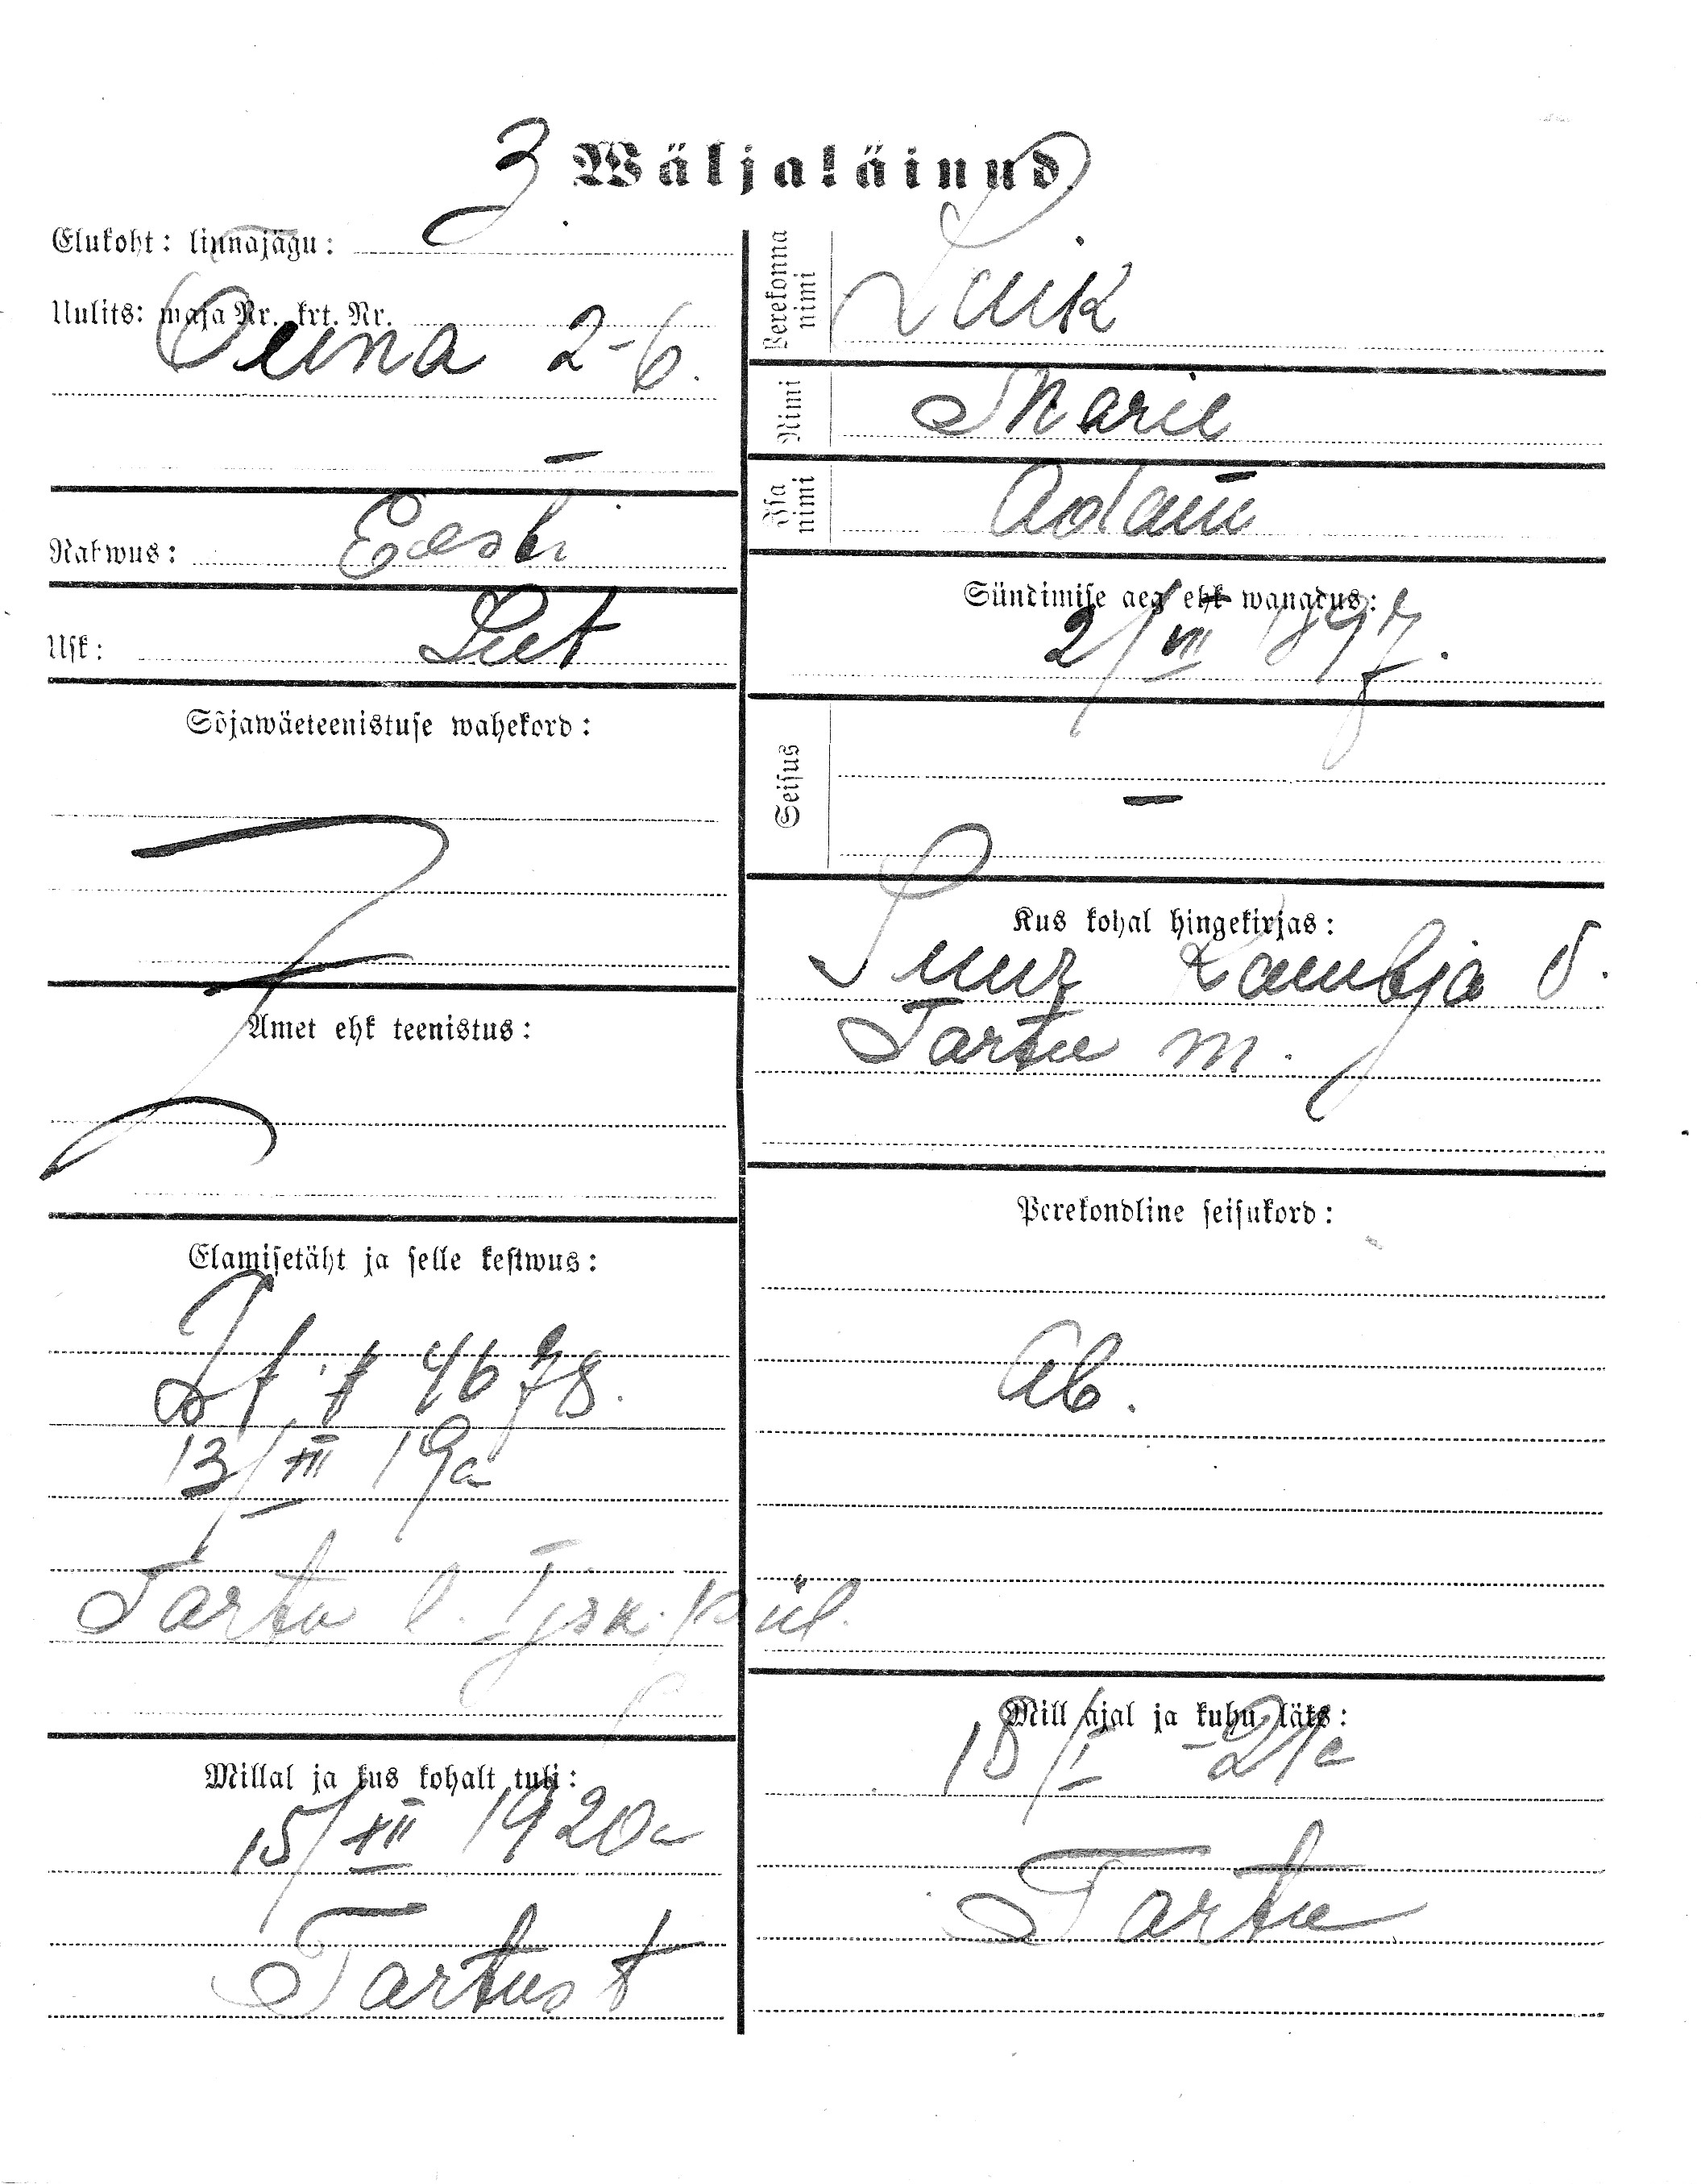 Wäljaläinud.
Elukoht: linnajagu: 3
Uulits: maja Nr. krt. Nr.
Õuna 2-6.
Rahwus: Eesti
Usk: Lut
Sõjawäeteenistuse wahekord:
Amet ehk teenistus:
Elamisetäht ja selle kestwus:
4678.
13/XII 19a
Tartu l.
Millal ja kus kohalt tuli:
15/XII 1920a
Tartust
Perekonna nimi Luik
Nimi Marie
Isa nimi Adam
Sündimise aeg ehk wanadus:
2/VII 1897.
Seisus –
Kus kohal hingekirjas:
Suur Kambja v.
Tartu m.
Perekondline seisukord:
Ab.
Mill ajal ja kuhu läks:
18/I -21a
Tartu